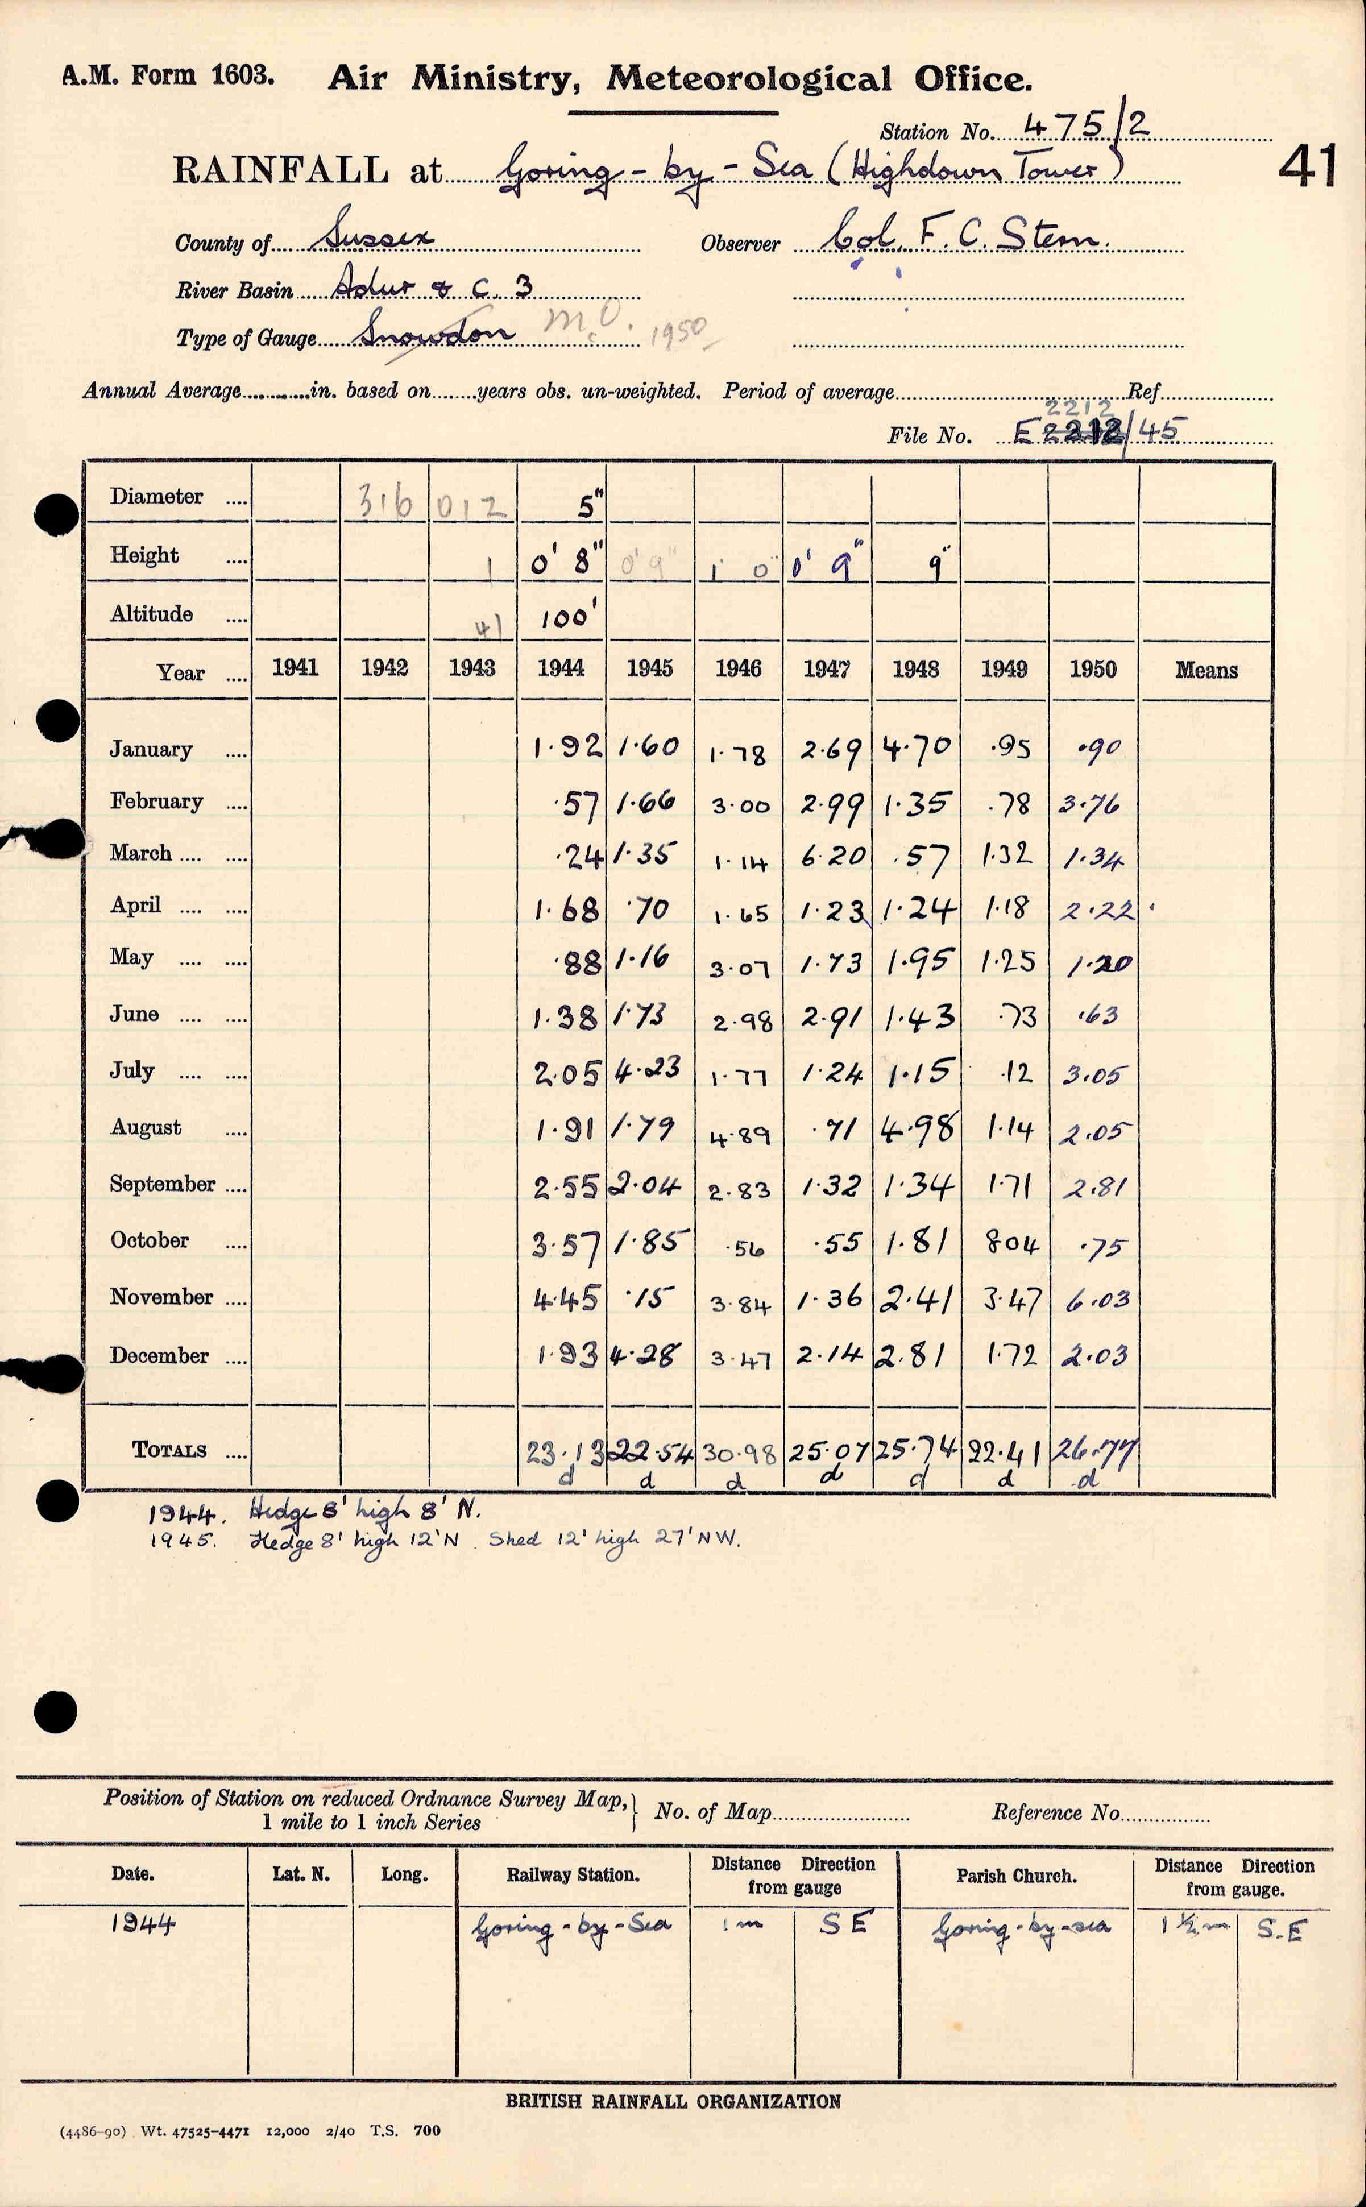 A.M. Form 1603. Air Ministry, Meteorological Office.
Station No. 475/2
41
RAINFALL at Goring-by-Sea (Highdown Tower)
County of Sussex Observer Col. F. C. Stern.
River Basin Adur & C. 3
Type of Gauge Snowdon M.O. 1950
Annual Average in. based on years obs. un-weighted. Period of average Ref.
2212
File No. E 2212/45
Diameter 316 012 5"
Height 1 0' 8" 0' 9" 1' 0" 0' 9" 9"
Altitude 41 100'
Year 1941 1942 1943 1944 1945 1946 1947 1948 1949 1950 Means
January 1.92 1.60 1.78 2.69 4.70 .95 .90
February .57 1.66 3.00 2.99 1.35 .78 3.76
March .24 1.35 1.14 6.20 .57 1.32 1.34
April 1.68 .70 1.65 1.23 1.24 1.18 2.22
May .88 1.16 3.07 1.73 1.95 1.25 1.20
June 1.38 1.73 2.98 2.91 1.43 .73 .63
July 2.05 4.23 1.77 1.24 1.15 .12 3.05
August 1.91 1.79 4.89 .71 4.98 1.14 2.05
September 2.55 2.04 2.83 1.32 1.34 1.71 2.81
October 3.57 1.85 .56 .55 1.81 804 .75
November 4.45 .15 3.84 1.36 2.41 3.47 6.03
December 1.93 4.28 3.47 2.14 2.81 1.72 2.03
TOTALS 23.13 22.54 30.98 25.07 25.74 22.41 26.77
d d d d d d d
1944. Hedge 8' high 8' N.
1945. Hedge 8' high 12' N. Shed 12' high 27' NW.
Position of Station on reduced Ordnance Survey Map, 1 mile to 1 inch Series } No. of Map Reference No.
Date. Lat. N. Long. Railway Station. Distance Direction from gauge Parish Church. Distance Direction from gauge.
1944 Goring-by-Sea 1m SE Goring-by-sea 1½m S.E
BRITISH RAINFALL ORGANIZATION
(4486-90) Wt. 47525-4471 12,000 2/40 T.S. 700